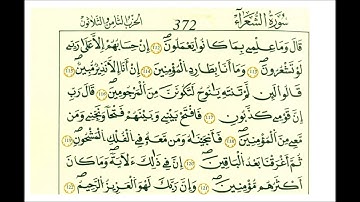 سُورَةُ الشُّعَرَاءِ 372 الحزب الثامن والثلاثون
قَالَ وَمَا عِلْمِي بِمَا كَانُوا يَعْمَلُونَ ١١٢ إِنْ حِسَابُهُمْ إِلَّا عَلَىٰ رَبِّي
لَوْ تَشْعُرُونَ ١١٣ وَمَا أَنَا بِطَارِدِ الْمُؤْمِنِينَ ١١٤ إِنْ أَنَا إِلَّا نَذِيرٌ مُّبِينٌ ١١٥
قَالُوا لَئِن لَّمْ تَنتَهِ يَٰنُوحُ لَتَكُونَنَّ مِنَ الْمَرْجُومِينَ ١١٦ قَالَ رَبِّ
إِنَّ قَوْمِي كَذَّبُونِ ١١٧ فَافْتَحْ بَيْنِي وَبَيْنَهُمْ فَتْحًا وَنَجِّنِي وَمَن
مَّعِيَ مِنَ الْمُؤْمِنِينَ ١١٨ فَأَنجَيْنَٰهُ وَمَن مَّعَهُ فِي الْفُلْكِ الْمَشْحُونِ ١١٩
ثُمَّ أَغْرَقْنَا بَعْدُ الْبَاقِينَ ١٢٠ إِنَّ فِي ذَٰلِكَ لَآيَةً وَمَا كَانَ
أَكْثَرُهُم مُّؤْمِنِينَ ١٢١ وَإِنَّ رَبَّكَ لَهُوَ الْعَزِيزُ الرَّحِيمُ ١٢٢